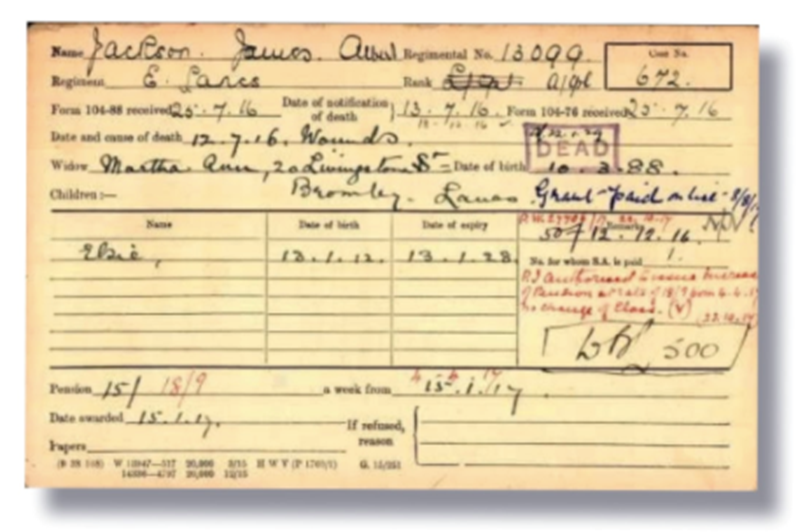 Name Jackson. James. Albert Regimental No. 13099. Case No.
Regiment E. Lancs Rank L/Cpl a/Cpl 672.
Form 104-88 received 25.7.16 Date of notification of death } 13.7.16. Form 104-76 received 25.7.16
Date and cause of death 12.7.16. Wounds.
DEAD
Widow Martha Ann, 20 Livingstone St = Date of birth 10.3.88.
Children:— Bromley. Lancs Grant paid
Name Date of birth Date of expiry Remarks
50/ 12.12.16.
Elsie, 13.1.12. 13.1.28. No. for whom S.A. is paid 1.
authorised increase
of Pension at rate of 18/9 from
no change of (V)
(22.10.17)
500
Pension 15/ 18/9 a week from 15.1.17.
Date awarded 15.1.17. If refused, reason
Papers
20,000 H W V
14896—4797 20,000 12/15